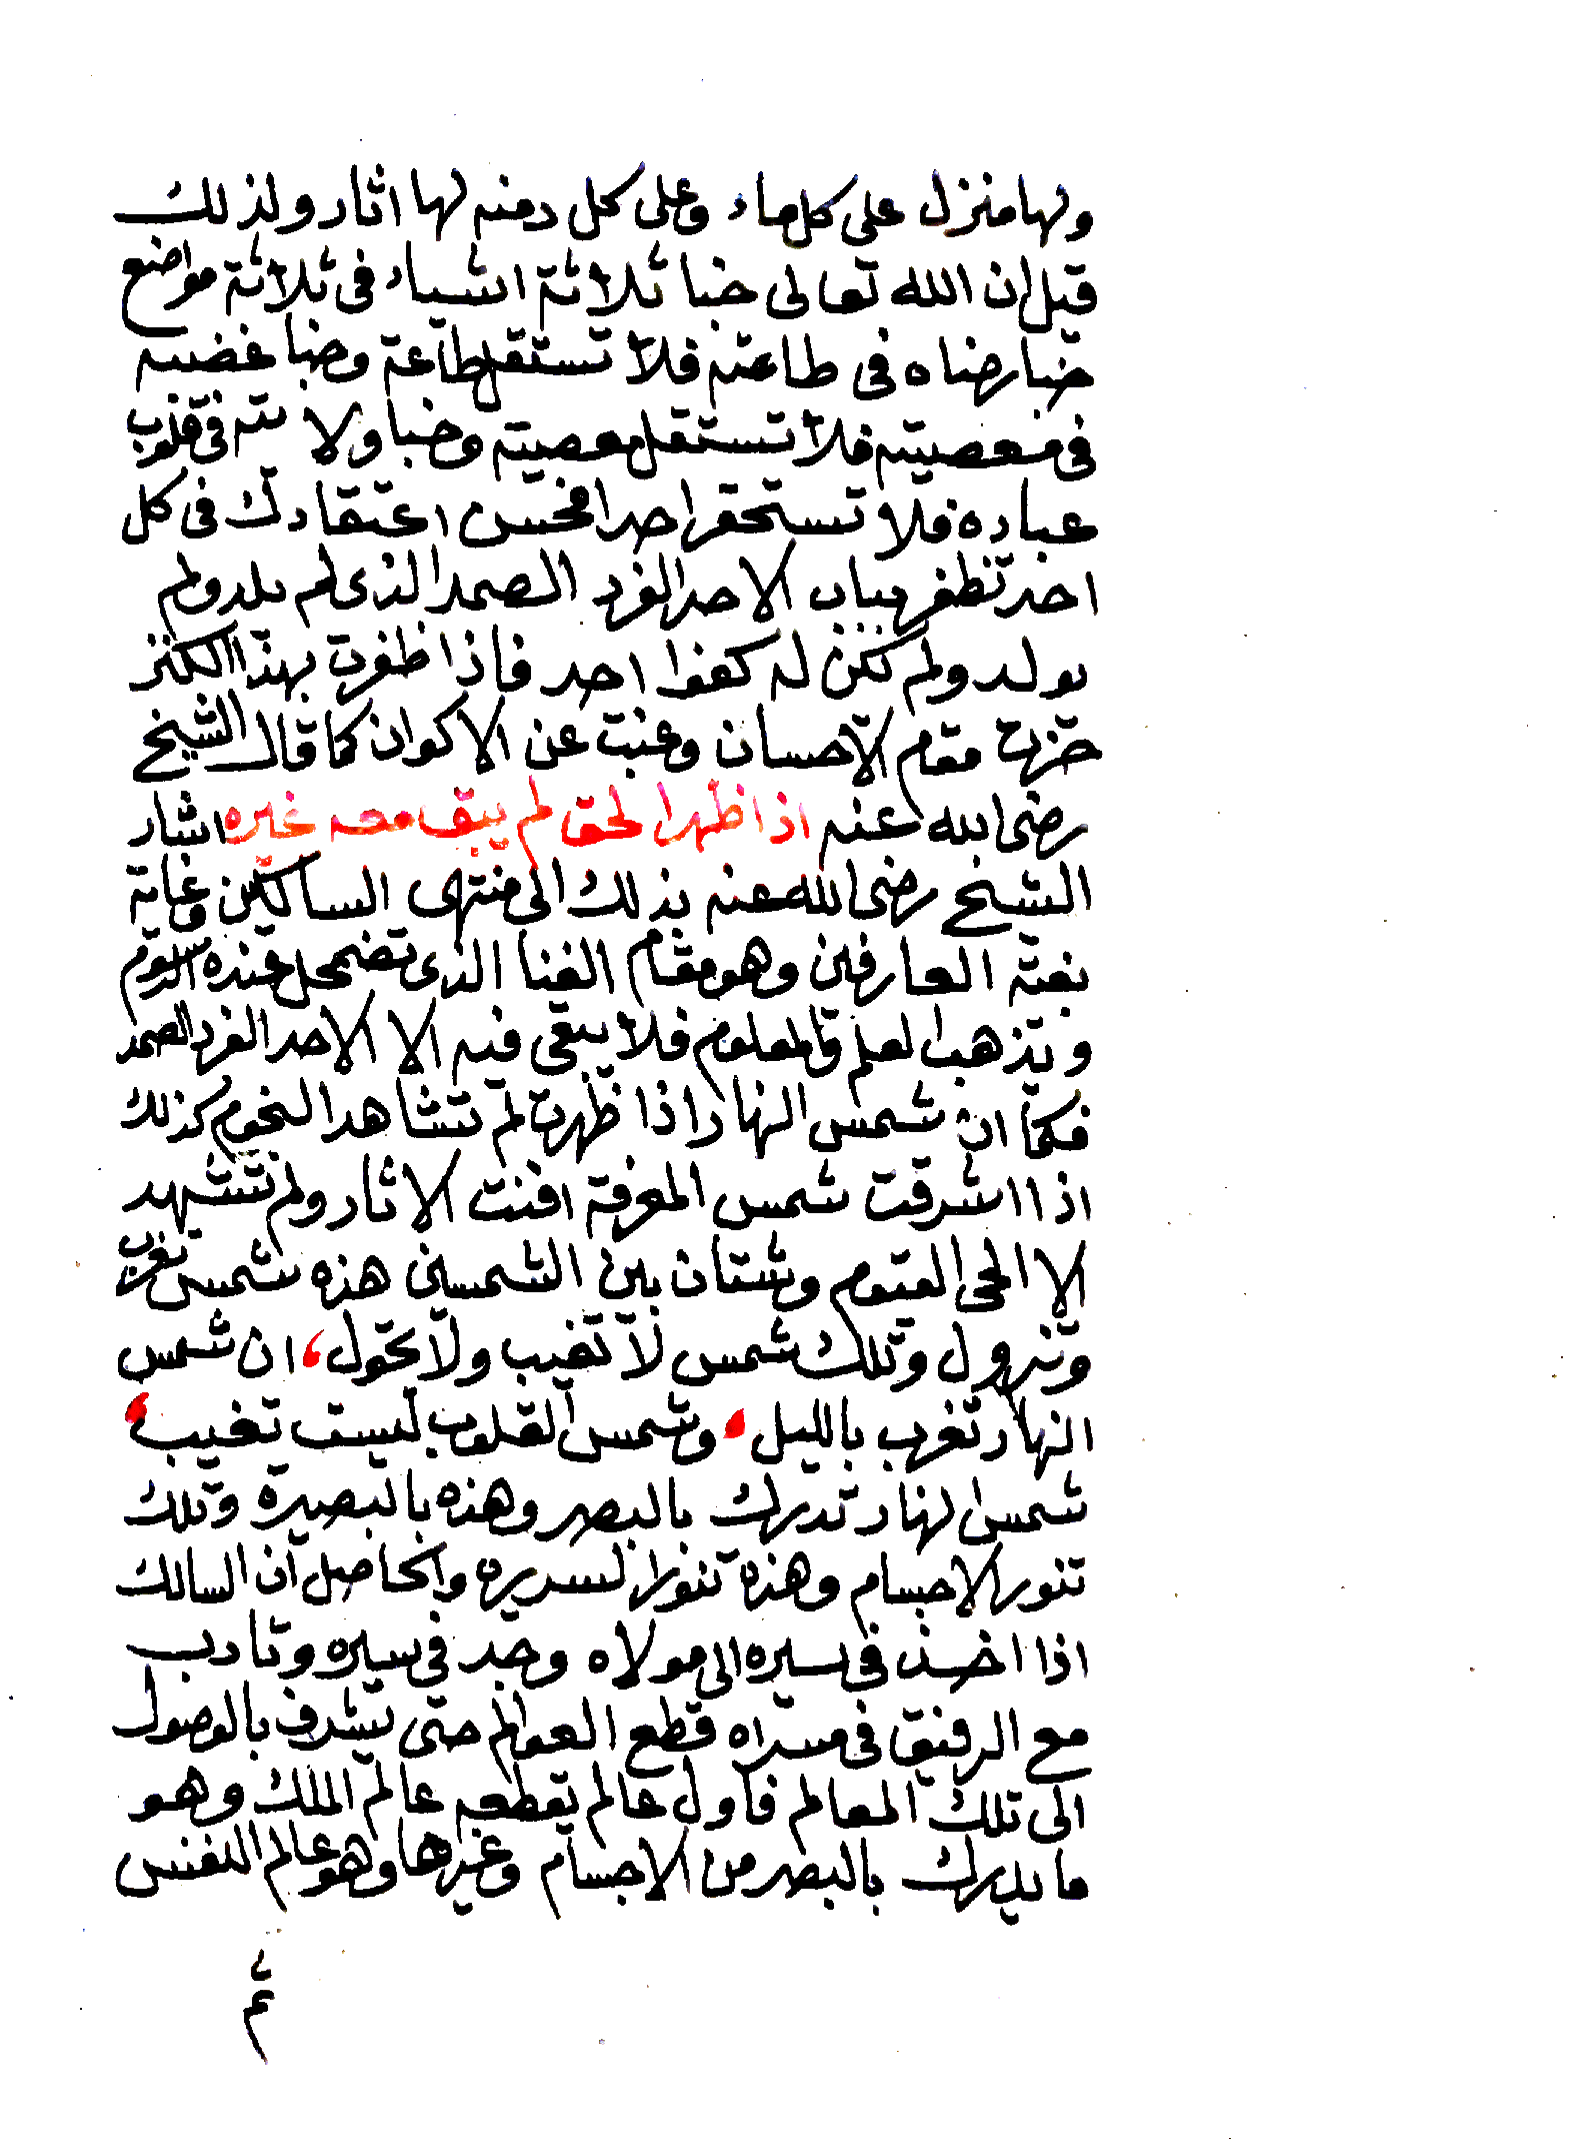 ولها منزل على كل ماء وعلى كل دمنه لها اثار ولذلك
قيل ان الله تعالى خبا ثلاثة اشياء فى ثلاثة مواضع
خبا رضاه فى طاعته فلا تستقل طاعة وخبا غضبه
فى معصيته فلا تستقل معصيته وخبا ولايته فى قلوب
عباده فلا تستحقر احدا فحسن اعتقادك فى كل
احد تظفر بباب الاحد الفرد الصمد الذى لم يلد ولم
يولد ولم يكن له كفوا احد فاذا ظفرت بهذا الكنز
حزت مقام الاحسان وغبت عن الاكوان كما قال الشيخ
رضى الله عنه اذا ظهر الحق لم يبق معه غيره اشار
الشيخ رضى الله عنه بذلك الى منتهى السالكين وغاية
بغية العارفين وهو مقام الفنا الذى تضمحل عنده الرسوم
وتذهب العلم والمعلوم فلا يبقى فيه الا الاحد الفرد الصمد
فكما ان شمس النهار اذا ظهرت لم تشاهد النجوم كذلك
اذا اشرقت شمس المعرفة افنت الاثار ولم تشهد
الا الحى القيوم وشتان بين الشمسين هذه شمس تغرب
وتزول وتلك شمس لا تغيب ولا تحول، ان شمس
النهار تغرب بالليل، وشمس القلوب ليست تغيب،
شمس النهار تدرك بالبصر وهذه بالبصيرة وتلك
تنور الاجسام وهذه تنور السريره والحاصل ان السالك
اذا اخذ فى سيره الى مولاه وجد فى سيره وتادب
مع الرفيق فى مسراه قطع العوالم حتى يشرف بالوصول
الى تلك المعالم فاول عالم يقطعه عالم الملك وهو
ما يدرك بالبصر من الاجسام وغيرها وهو عالم النفس
ثم